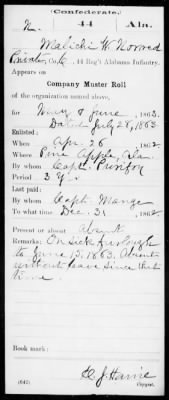 Confederate.
N 44 Ala.
Malichi W. Norred
Private, Co. C, 44 Reg't Alabama Infantry.
Appears on
Company Muster Roll
of the organization named above,
for May & June, 1863.
Dated July 28, 1863
Enlisted:
When Apr. 26, 1862
Where Pine Apple, Ala.
By whom Capt.
Period 3 y.
Last paid:
By whom Capt. Mange
To what time Dec. 31, 1862
Present or absent Absent
Remarks: On sick furlough
to June 15, 1863. Absent
without leave since that
time.
Book mark:
(642) Copyist.